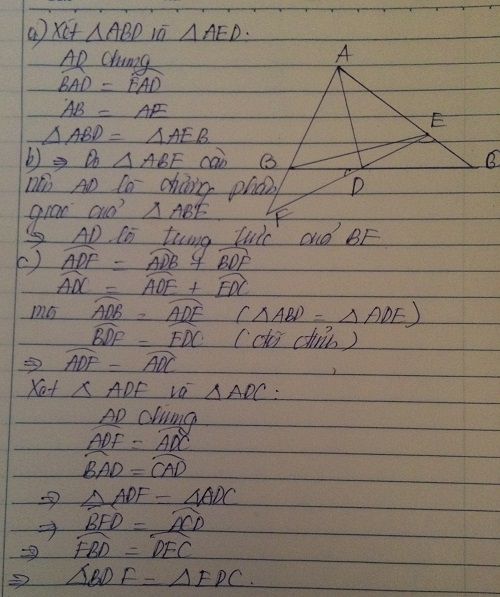 a) Xét △ABD và △AED:
AD chung
BAD = EAD
AB = AE
△ABD = △AEB
b) ⇒ Do △ABE cân
nên AD là đường phân
giác của △ABE
⇒ AD là trung trực của BE
c) ADF = ADB + BDF
ADC = ADE + EDC
mà ADB = ADE (△ABD = △ADE)
BDF = EDC (đối đỉnh)
⇒ ADF = ADC
Xét △ ADF và △ADC:
AD chung
ADF = ADC
BAD = CAD
⇒ △ADF = △ADC
⇒ BFD = ACD
⇒ FBD = DEC
⇒ △BDF = △EDC.
A
E
B
D
B
F